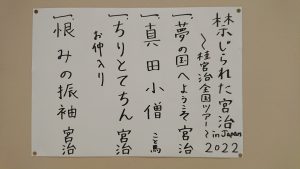 禁じられた宮治 in Japan 2022
〜桂宮治全国ツアー〜
一、夢の国へようこそ 宮治
一、真田小僧 こと馬
一、ちりとてちん 宮治
お仲入り
一、恨みの振袖 宮治